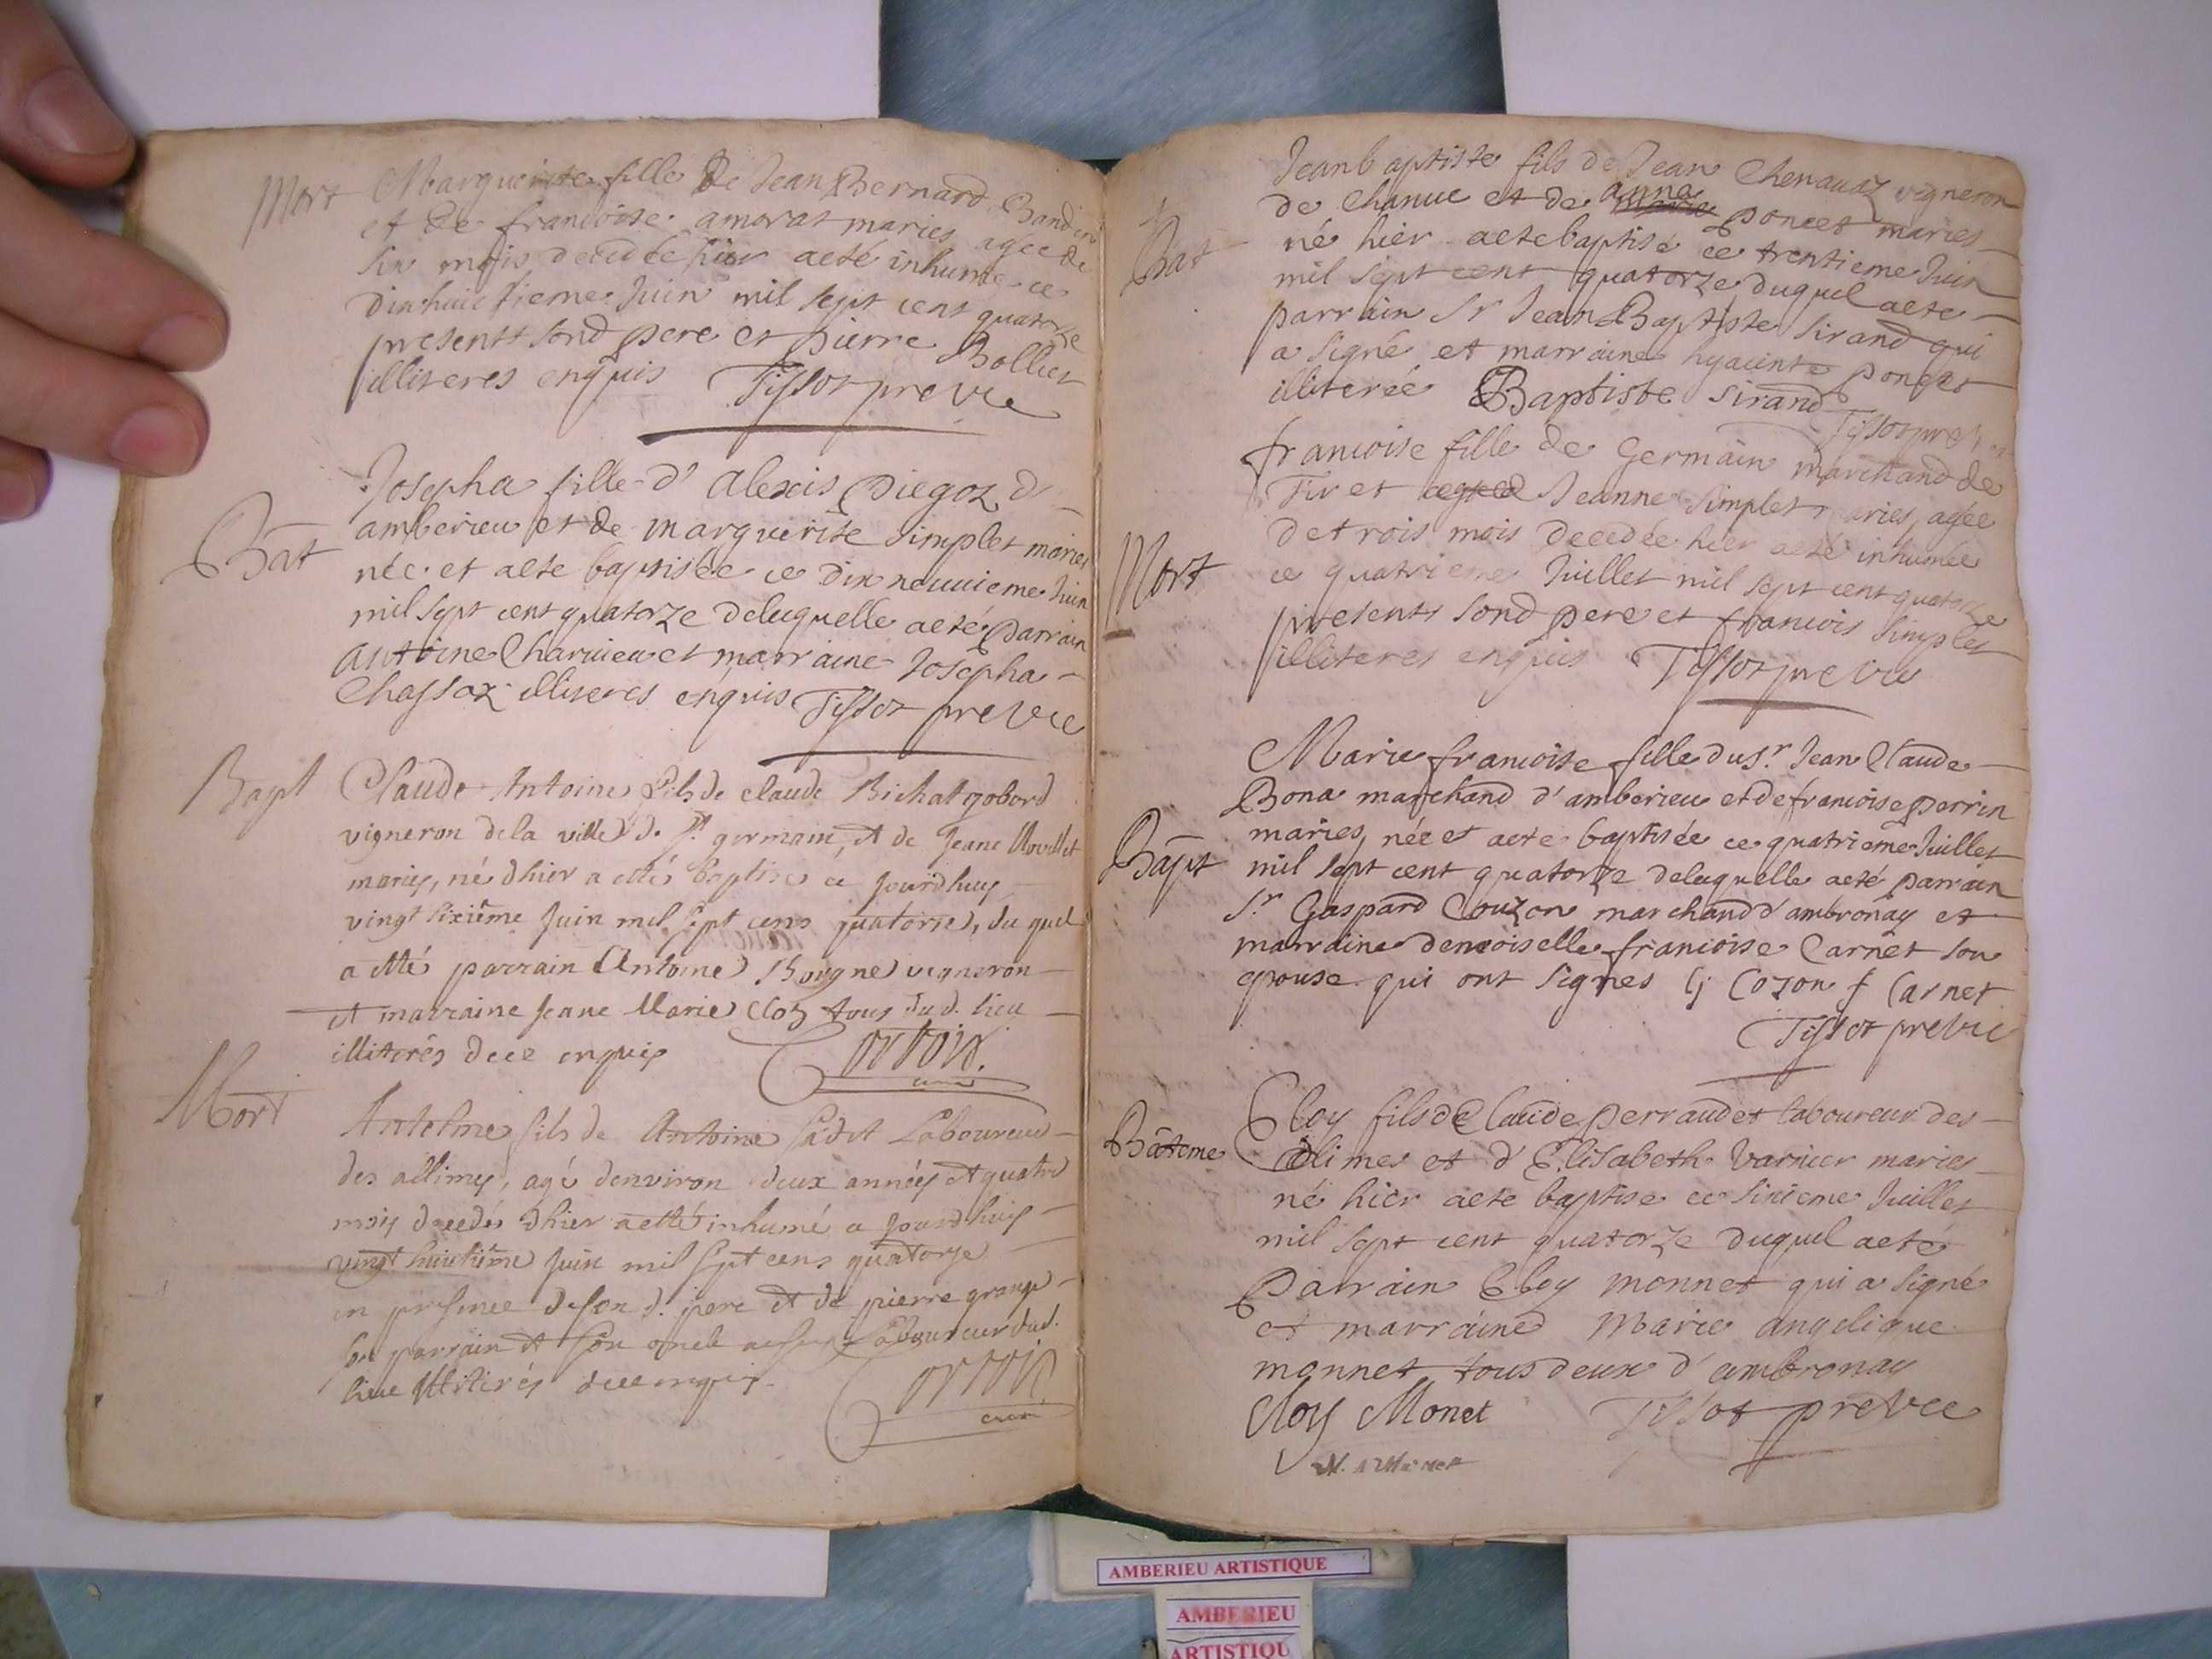 Mort
Marguerite fille de Jean Bernard Bandin
et de francoise amorat maries agée de
six mois decedée hier aeté inhumée ce
dixhuictieme Juin mil sept cent quatorze
presents sond pere et pierre Bollier
illiteres enquis Tissot prevre
Bat
Josepha fille d' Alexis Piegoz d'
amberieu et de marguerite simplet maries
née et aeté baptisée ce dix neuuieme Juin
mil sept cent quatorze delaquelle aeté parrain
antoine Charuieu et marraine Josepha
Chassaz illiteres enquis Tissot prevre
Bapt
Claude Antoine fils de claude Bichat gobord
vigneron de la ville d. St. germain, et de Jeane
maries, né dhier a etté baptisé ce jourdhuy
vingt sixiême Juin mil sept cens quatorse, du quel
a etté parrain Antoine Borgne vigneron
et marraine Jeane Marie Cloz tous dud. lieu
illiterés de ce enquis
Mort
Antelme fils de Antoine Cadit Laboureur
des allimes, agé denviron deux années et quatre
mois decedés dhier a etté inhumé ce jourdhuy
vingt huitiême Juin mil sept cens quatorse
en presence de son d. pere et de pierre grange
son parrain et son oncle Laboureur dud.
lieu illiterés de ce enquis
Bat
Jean baptiste fils de Jean Chenauaz vigneron
de Chanue et de anna poncet maries
né hier aeté baptisé ce trentieme Juin
mil sept cent quatorze duquel aeté
parrain Sr Jean Baptiste Sirand qui
a signé et marraine hyacinte poncet
illiterée Baptiste Sirand
Tissot prevre
Mort
francoise fille de Germain marchand de
Tir et Jeanne Simplet maries, agée
de trois mois decedée hier aeté inhumée
ce quatrieme Juillet mil sept cent quatorze
presents sond pere et francois simplet
illiteres enquis Tissot prevre
Bapt
Marie francoise fille du sr. Jean Claude
Bona marchand d'amberieu et de francoise perrin
maries, née et aeté baptisée ce quatrieme Juillet
mil sept cent quatorze delaquelle aeté parrain
Sr Gaspard Couzon marchand d'ambronay et
marraine demoiselle francoise Carnet son
epouse qui ont signes G Cozon f Carnet
Tissot prevre
Bâteme
Eloy fils de Claude perraudet laboureur des
alimes et d' Elisabeth Varnier maries
né hier aeté baptisé ce sixieme Juillet
mil sept cent quatorze duquel aeté
Parrain Eloy monnet qui a signé
et marraine Marie angelique
monnet tous deux d' ambronay
Eloy Monet Tissot prevre
AMBERIEU ARTISTIQUE
AMBERIEU
ARTISTIQU